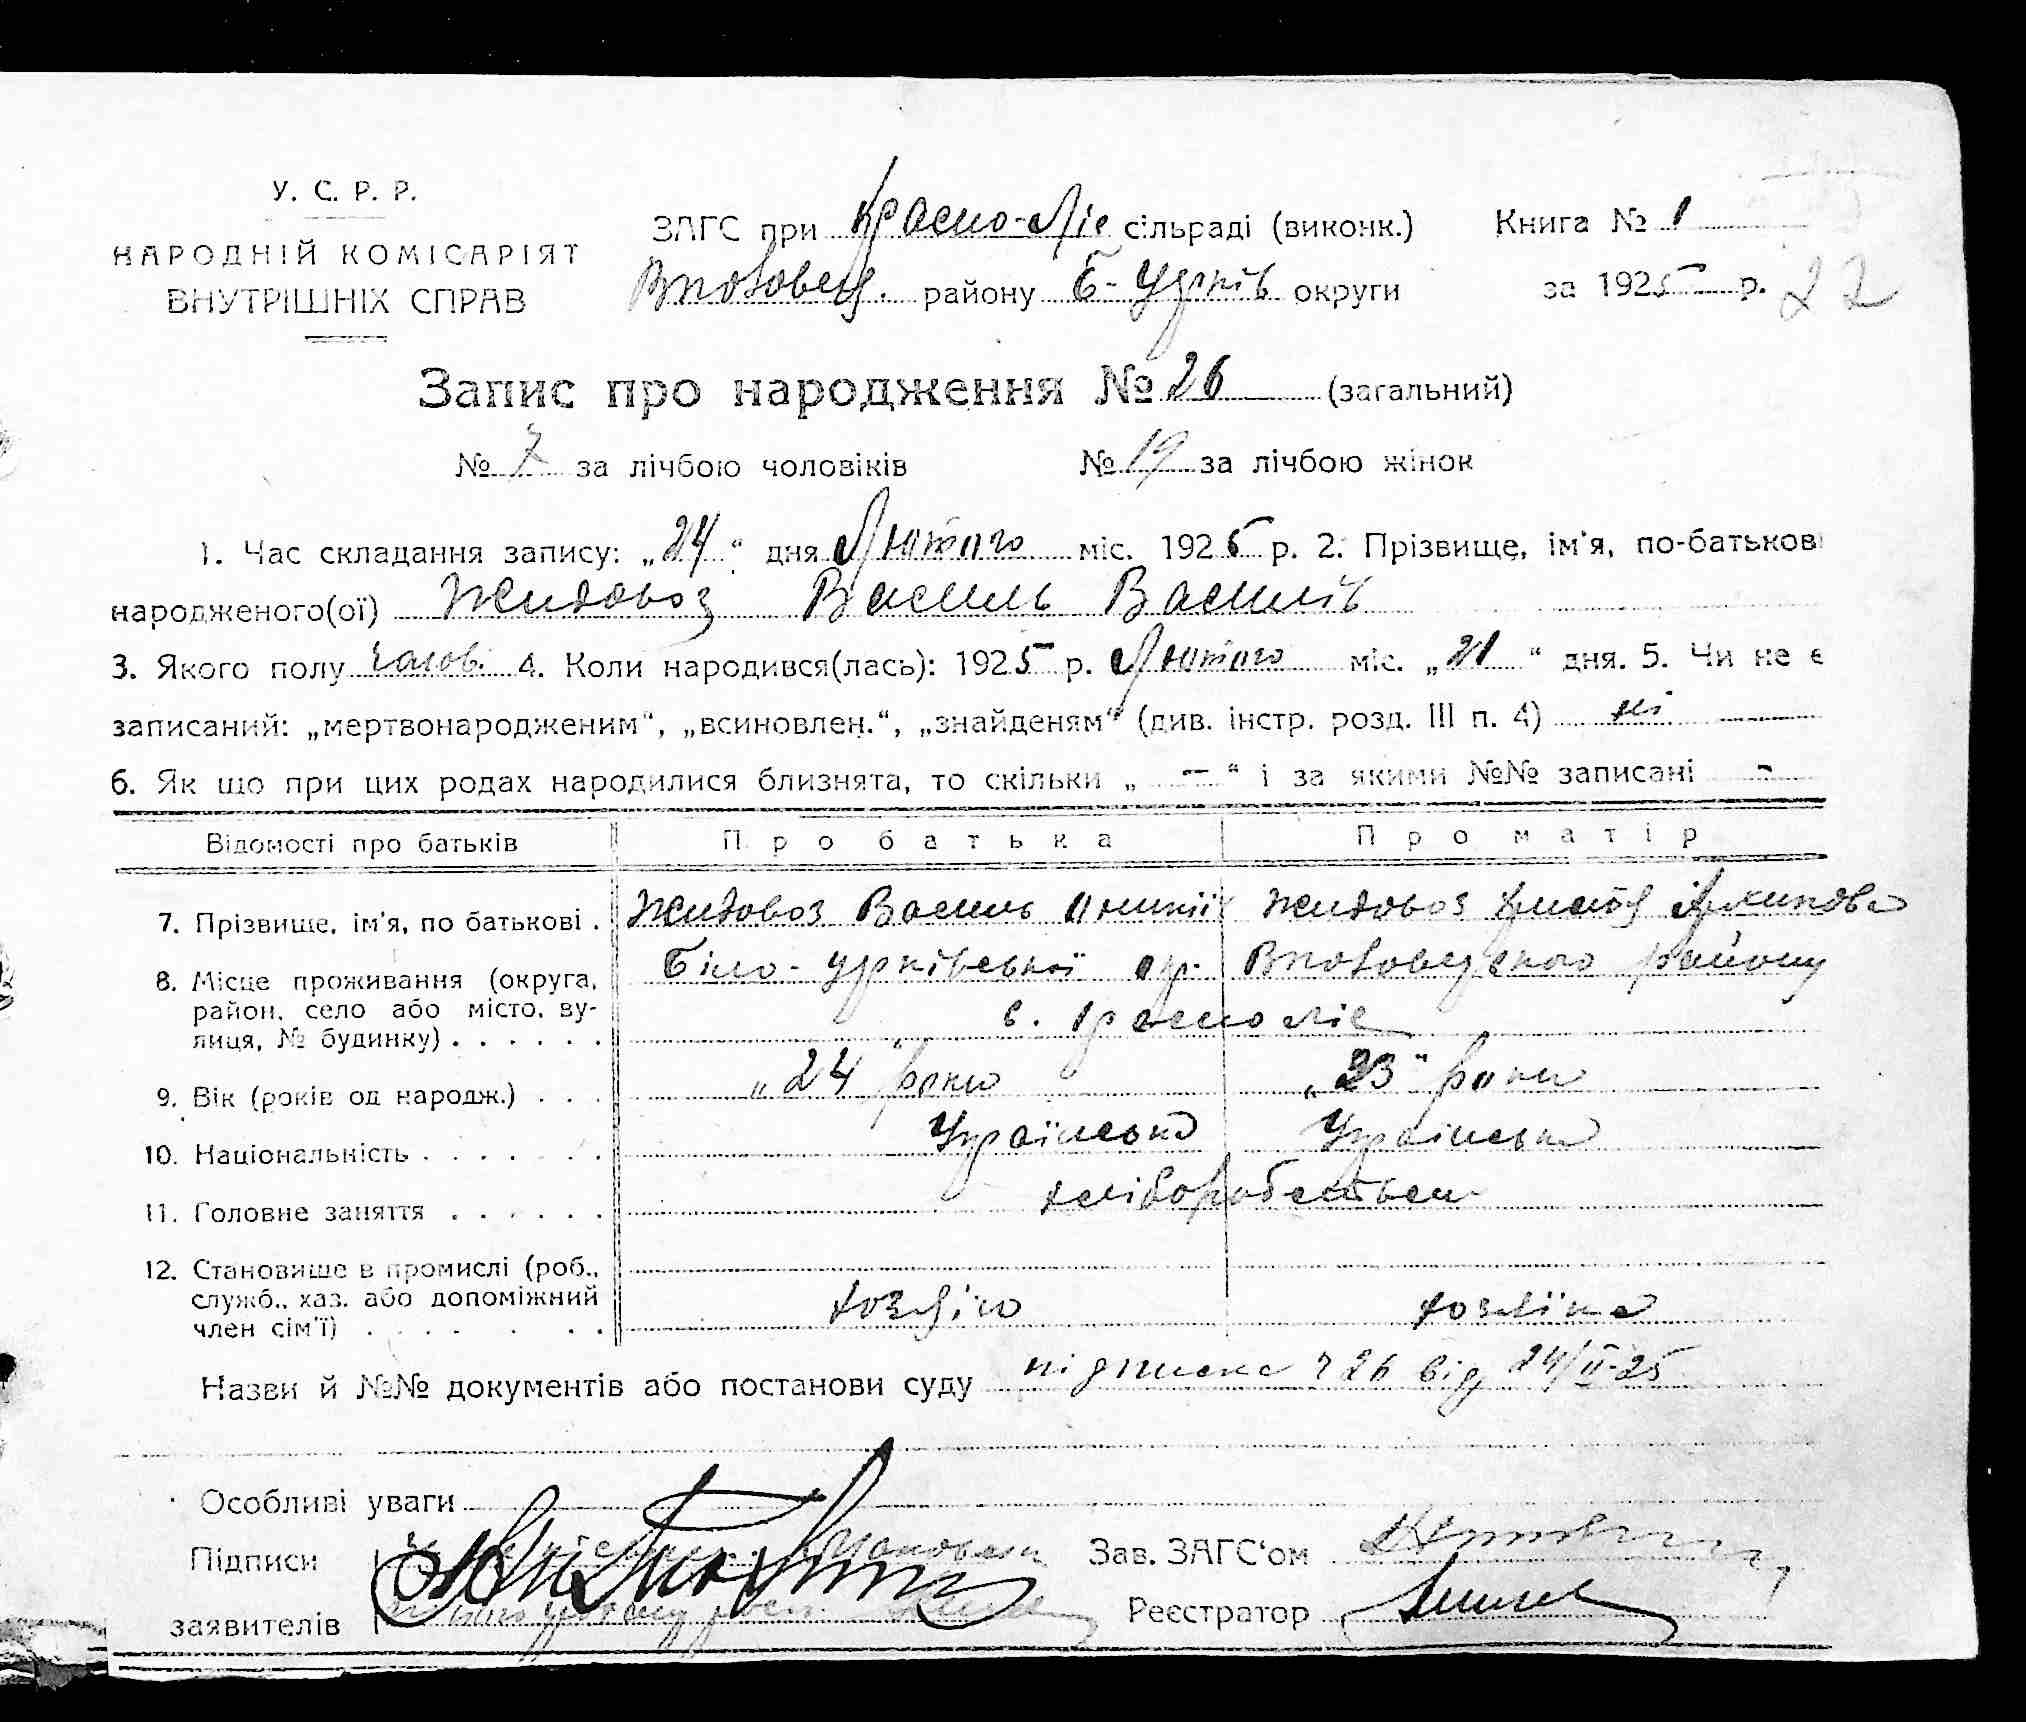 У. С. Р. Р.
НАРОДНІЙ КОМІСАРІЯТ
ВНУТРІШНІХ СПРАВ
ЗАГС при Красно-Ліс сільраді (виконк.)
района Б-Церків округи
Книга № 1
за 1925 р. 22
Запис про народження № 26 (загальний)
№ 7 за лічбою чоловіків № 19 за лічбою жінок
1. Час складання запису: „24“ дня Лютого міс. 1925 р. 2. Прізвище, ім'я, по-батькові
народженого(ої) Жидовоз Василь Василів
3. Якого полу чолов. 4. Коли народився(лась): 1925 р. Лютого міс. „21“ дня. 5. Чи не є
записаний: „мертвонародженим“, „всиновлен.“, „знайденям“ (див. інстр. розд. III п. 4) ні
6. Як що при цих родах народилися близнята, то скільки „ - “ і за якими №№ записані -
Відомості про батьків Про батька Про матір
7. Прізвище, ім'я, по батькові . Жидовоз Василь Жидовоз
8. Місце проживання (округа, Біло-Церківської окр. району
район, село або місто, ву- с. Красноліс
лиця, № будинку) . . . . . .
9. Вік (років од народж.) . . . „24“ роки „23“ роки
10. Національність . . . . . . . Українська Українська
11. Головне заняття . . . . . . хліборобством
12. Становище в промислі (роб.,
служб., хаз. або допоміжний хозяїн хозяїна
член сім'ї) . . . . . . .
Назви й №№ документів або постанови суду підписка ч 26 від 24/II-25
Особливі уваги
Підписи
заявителів
Зав. ЗАГС'ом
Реєстратор